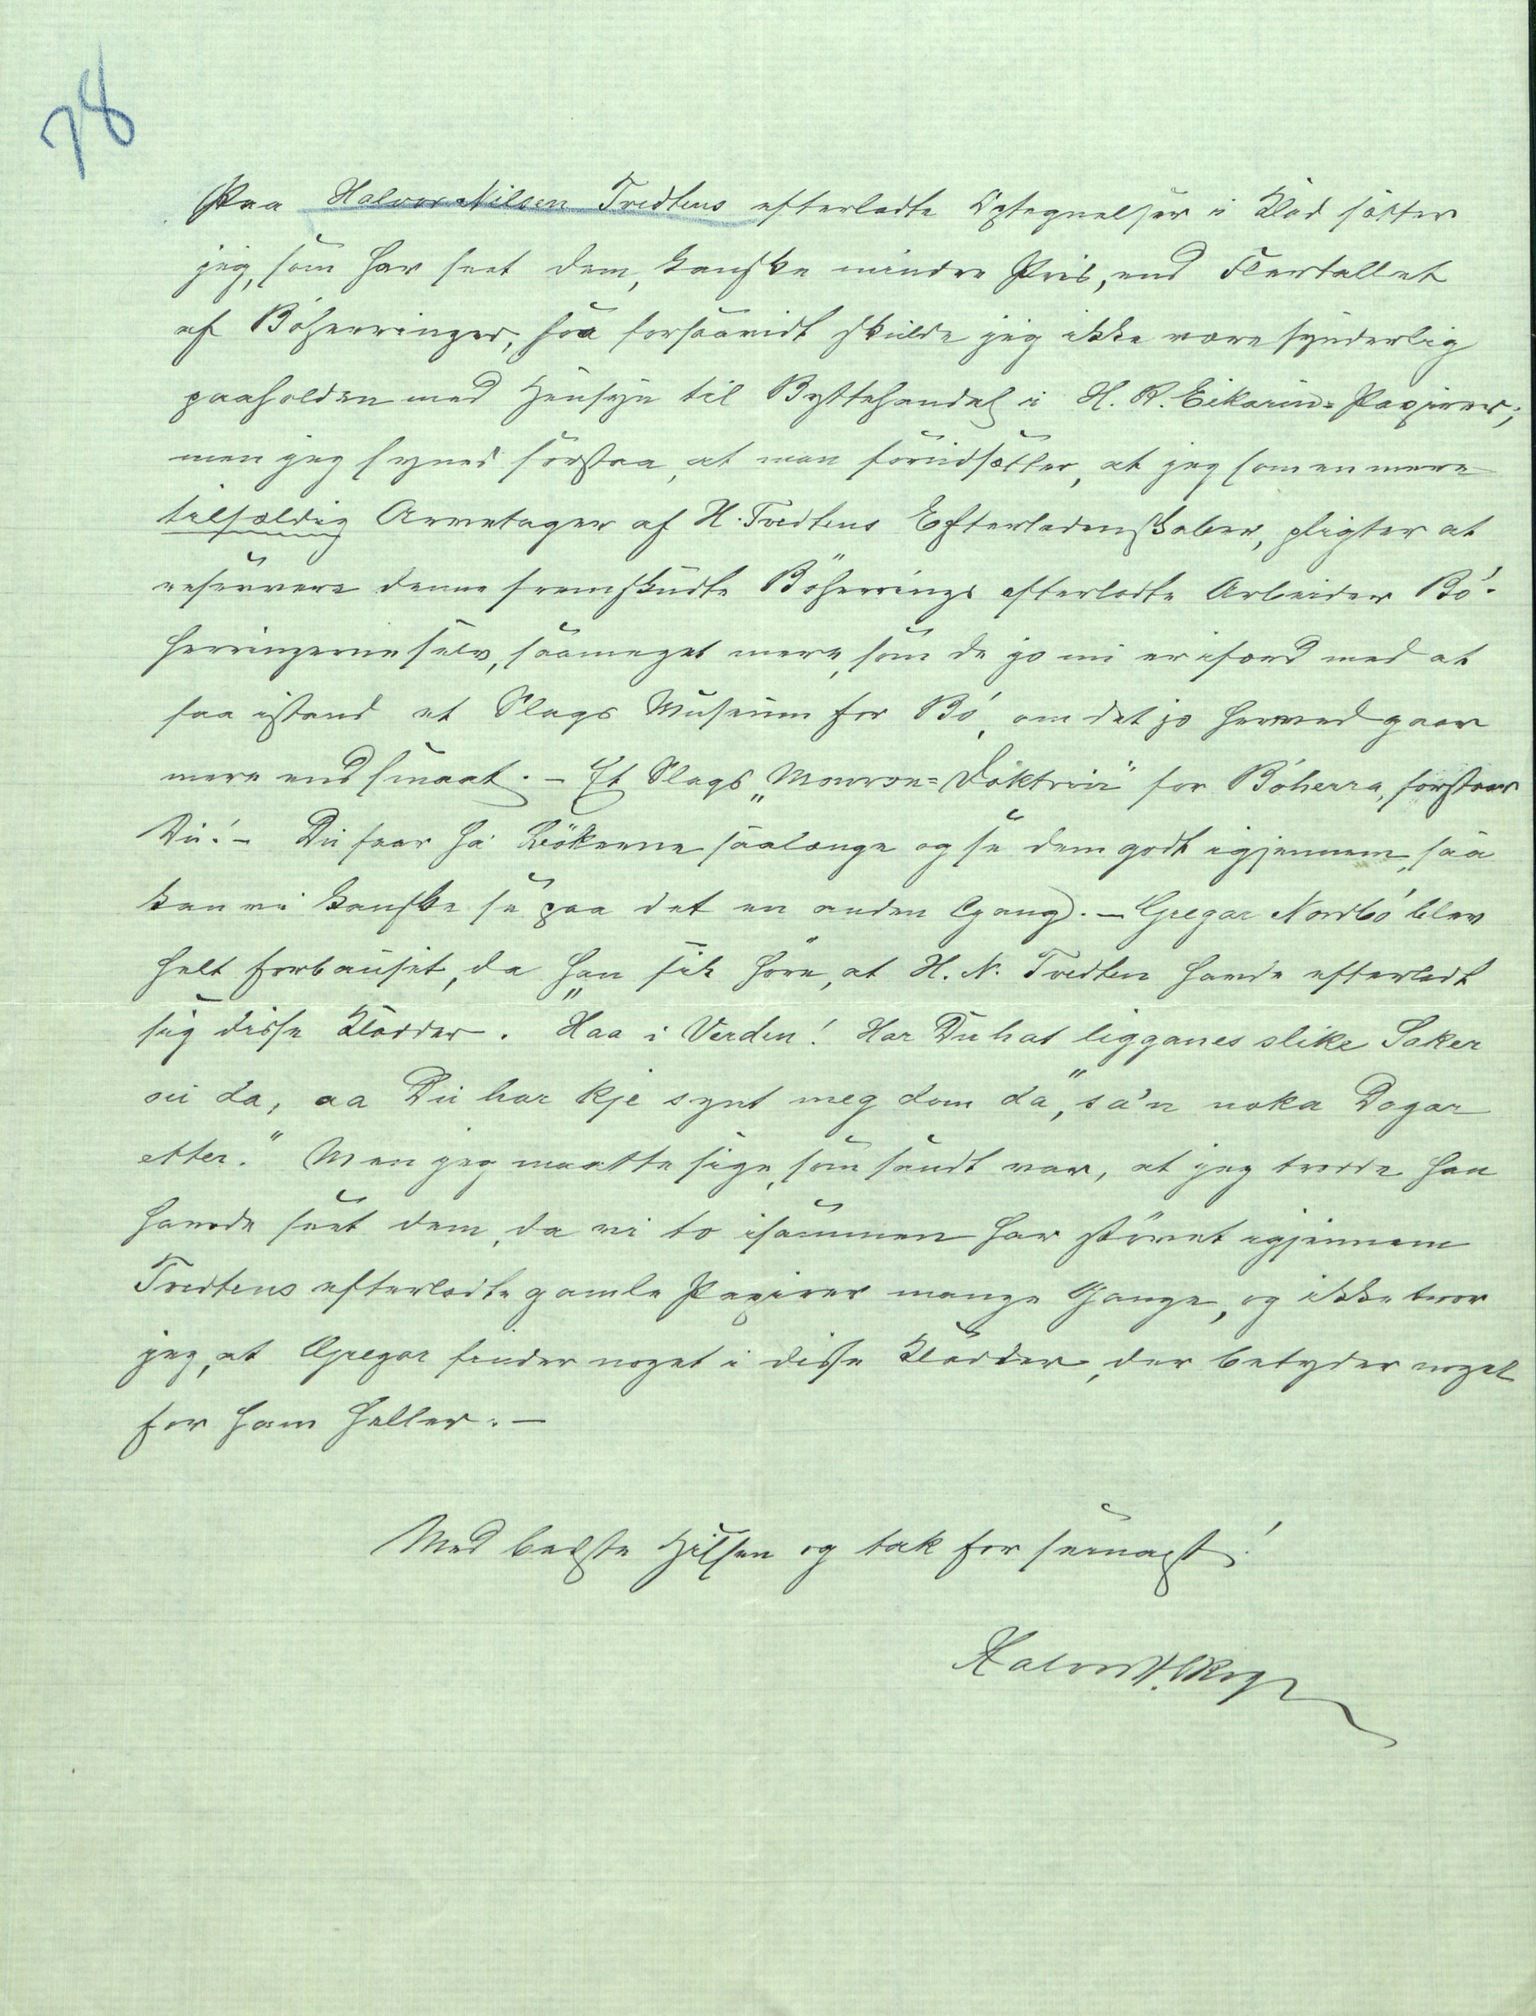 78
Paa Halvor Nilsen Tvedtens efterladte Optegnelser i Klad sætter
jeg, som har seet dem, kanske mindre Pris, end Flertallet
af Bøherringer, saa forsaavidt skulde jeg ikke være synderlig
paaholden med Hensyn til Byttehandel i H. R. Eikarin-Papirer;
men jeg synes forstaa, at man forudsætter, at jeg som en mere
tilfældig Arvetager af H. Tvedtens Efterladenskaber, pligter at
reservere denne fremskudte Bøherrings efterladte Arbeider Bø-
herringerne selv, saameget mere, som de jo nu er ifærd med at
faa istand et Slags Museum for Bø, om det jo hermed gaar
mere end smaat. - Et Slags „Monroe-Doktrin" for Bøherra, forstaar
Du! - Du faar ha Bøkerne saalænge og se dem godt igjennem, saa
kan vi kanske se paa det en anden Gang. - Gregar Nordbø blev
helt forbauset, da han fik høre, at H. N. Tvedten havde efterladt
sig disse Kladder. „Haa i Verden! Har Du hat ligganes slike Saker
oú da, aa Du har kje synt meg dom da", sa'n noka Dagar
etter." Men jeg maatte sige, som sandt var, at jeg trode han
havde seet dem, da vi to isammen har støvet igjennem
Tvedtens efterladte gamle Papirer mange Gange, og ikke tror
jeg, at Gregar finder noget i disse Kladder, der betyder noget
for ham heller. -
Med bedste Hilsen og tak for seinast!
Halvor H.